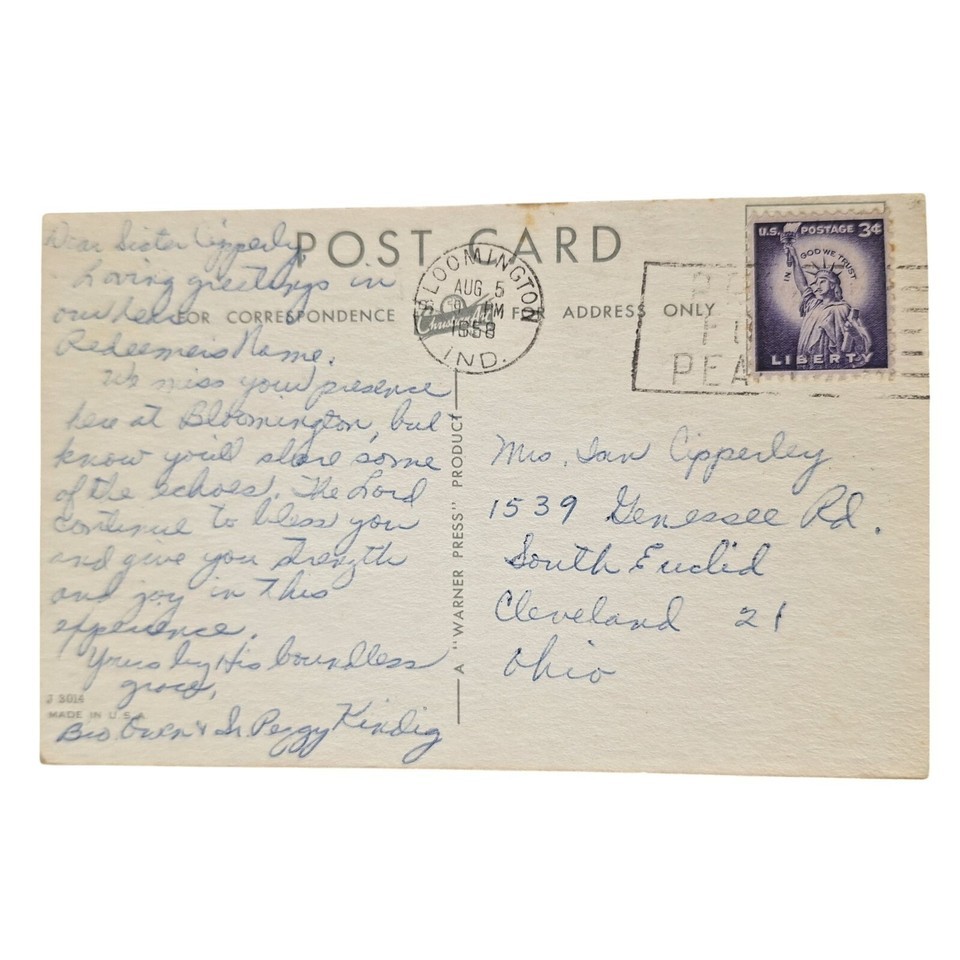 POST CARD
FOR CORRESPONDENCE
FOR ADDRESS ONLY
Dear Sister Cipperly,
Loving greetings in
our dear
Redeemer's Name.
We miss your presence
here at Bloomington, but
know you'll share some
of the echoes. The Lord
continue to bless you
and give you strength
and joy in this
experience.
Yours by His boundless
grace,
Bro Owen & Sr. Peggy Kindig
J 3014
MADE IN U.S.A.
A "WARNER PRESS" PRODUCT
BLOOMINGTON
AUG 5
PM
1958
IND.
PEA
U.S. POSTAGE 3¢
IN GOD WE TRUST
LIBERTY
Mrs. Ian Cipperley
1539 Genessee Rd.
South Euclid
Cleveland 21
Ohio